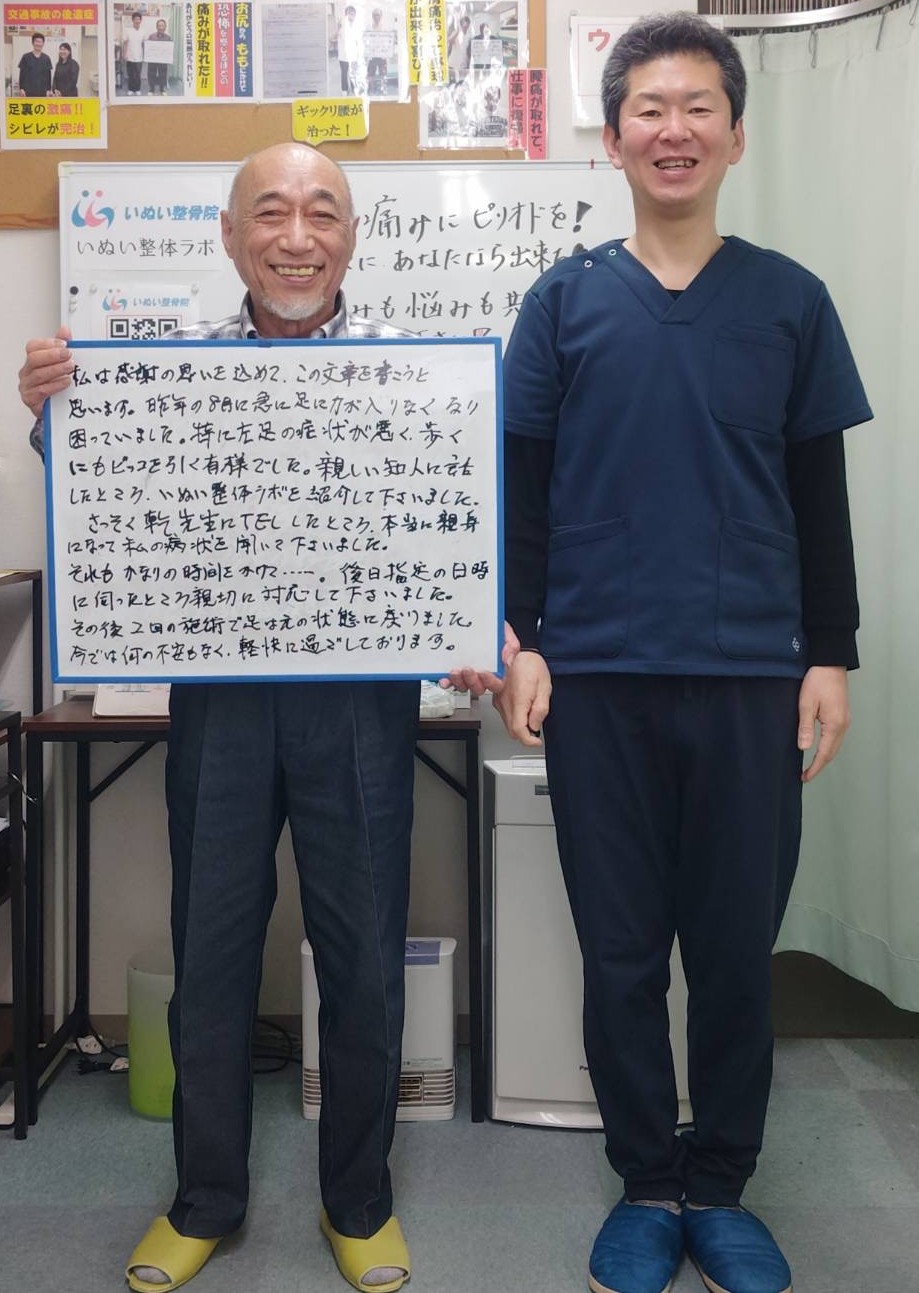 交通事故の後遺症
足裏の激痛!!
シビレが完治!
痛みが取れた!!
お尻からももにかけて
ギックリ腰が
治った!
腰痛が取れて、
仕事に復帰
ウ
いぬい整骨院
いぬい整体ラボ
いぬい整骨院
痛みにピリオドを!
に あなたなら出来
みも悩みも共
私は感謝の思いを込めて、この文章を書こうと
思います。昨年の8月に急に足に力が入りなくなり
困っていました。特に左足の症状が悪く、歩く
にもビッコを引く有様でした。親しい知人に話
したところ、いぬい整体ラボを紹介して下さいました。
さっそく乾先生にTELしたところ、本当に親身
になって私の病状を聞いて下さいました。
それもかなりの時間をかけて……。後日指定の日時
に伺ったところ親切に対応して下さいました。
その後2回の施術で足は元の状態に戻りました。
今では何の不安もなく、軽快に過ごしております。